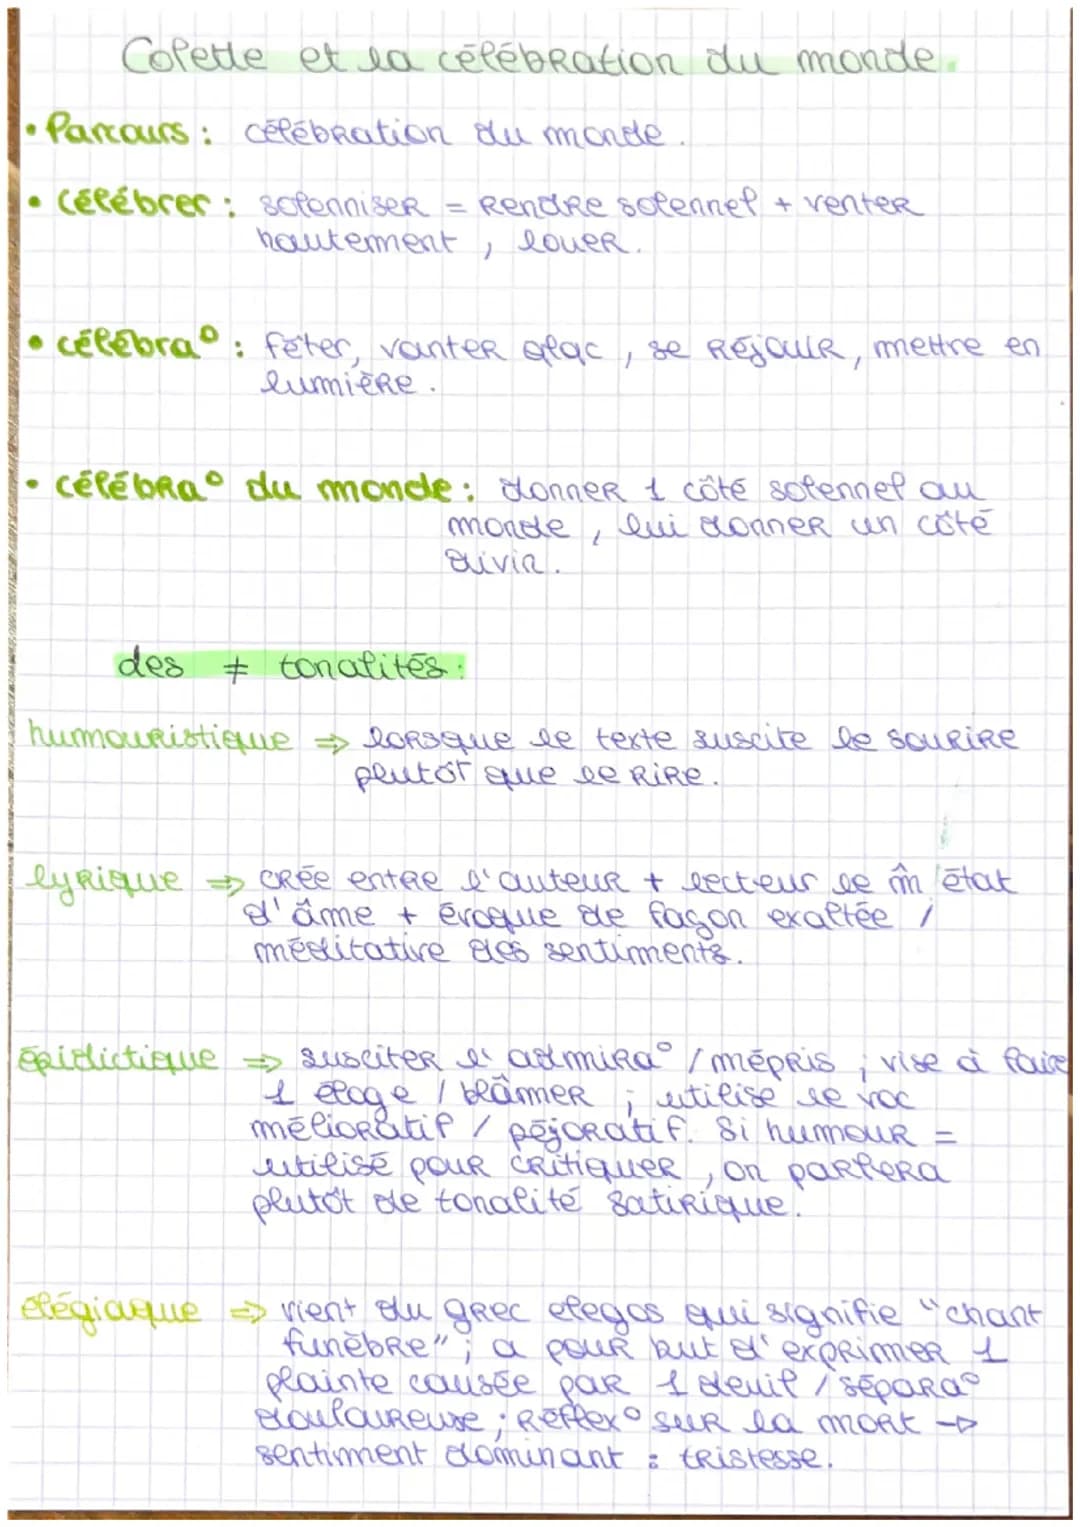 Colette et la célébration du monde.
• Parcours : célébration du monde.
• célébrer : solenniser = Rendre solennel + venter
hautement, louer.
• célébra° : fêter, vanter qlqc, se réjouir, mettre en
lumière.
• célébra° du monde : donner 1 côté solennel au
monde, lui donner un côté
divin.
des ≠ tonalités :
humouristique ⇒ lorsque le texte suscite le sourire
plutôt que le rire.
lyrique ⇒ crée entre l'auteur + lecteur le m̂ état
d'âme + évoque de façon exaltée /
méditative des sentiments.
épidictique ⇒ susciter l'admira° / mépris ; vise à faire
1 éloge / blâmer ; utilise le voc
mélioratif / péjoratif. Si humour =
utilisé pour critiquer, on parlera
plutôt de tonalité satirique.
élégiaque ⇒ vient du grec elegos qui signifie "chant
funèbre" ; a pour but d'exprimer 1
plainte causée par 1 deuil / sépara°
douloureuse ; réflex° sur la mort →
sentiment dominant : tristesse.